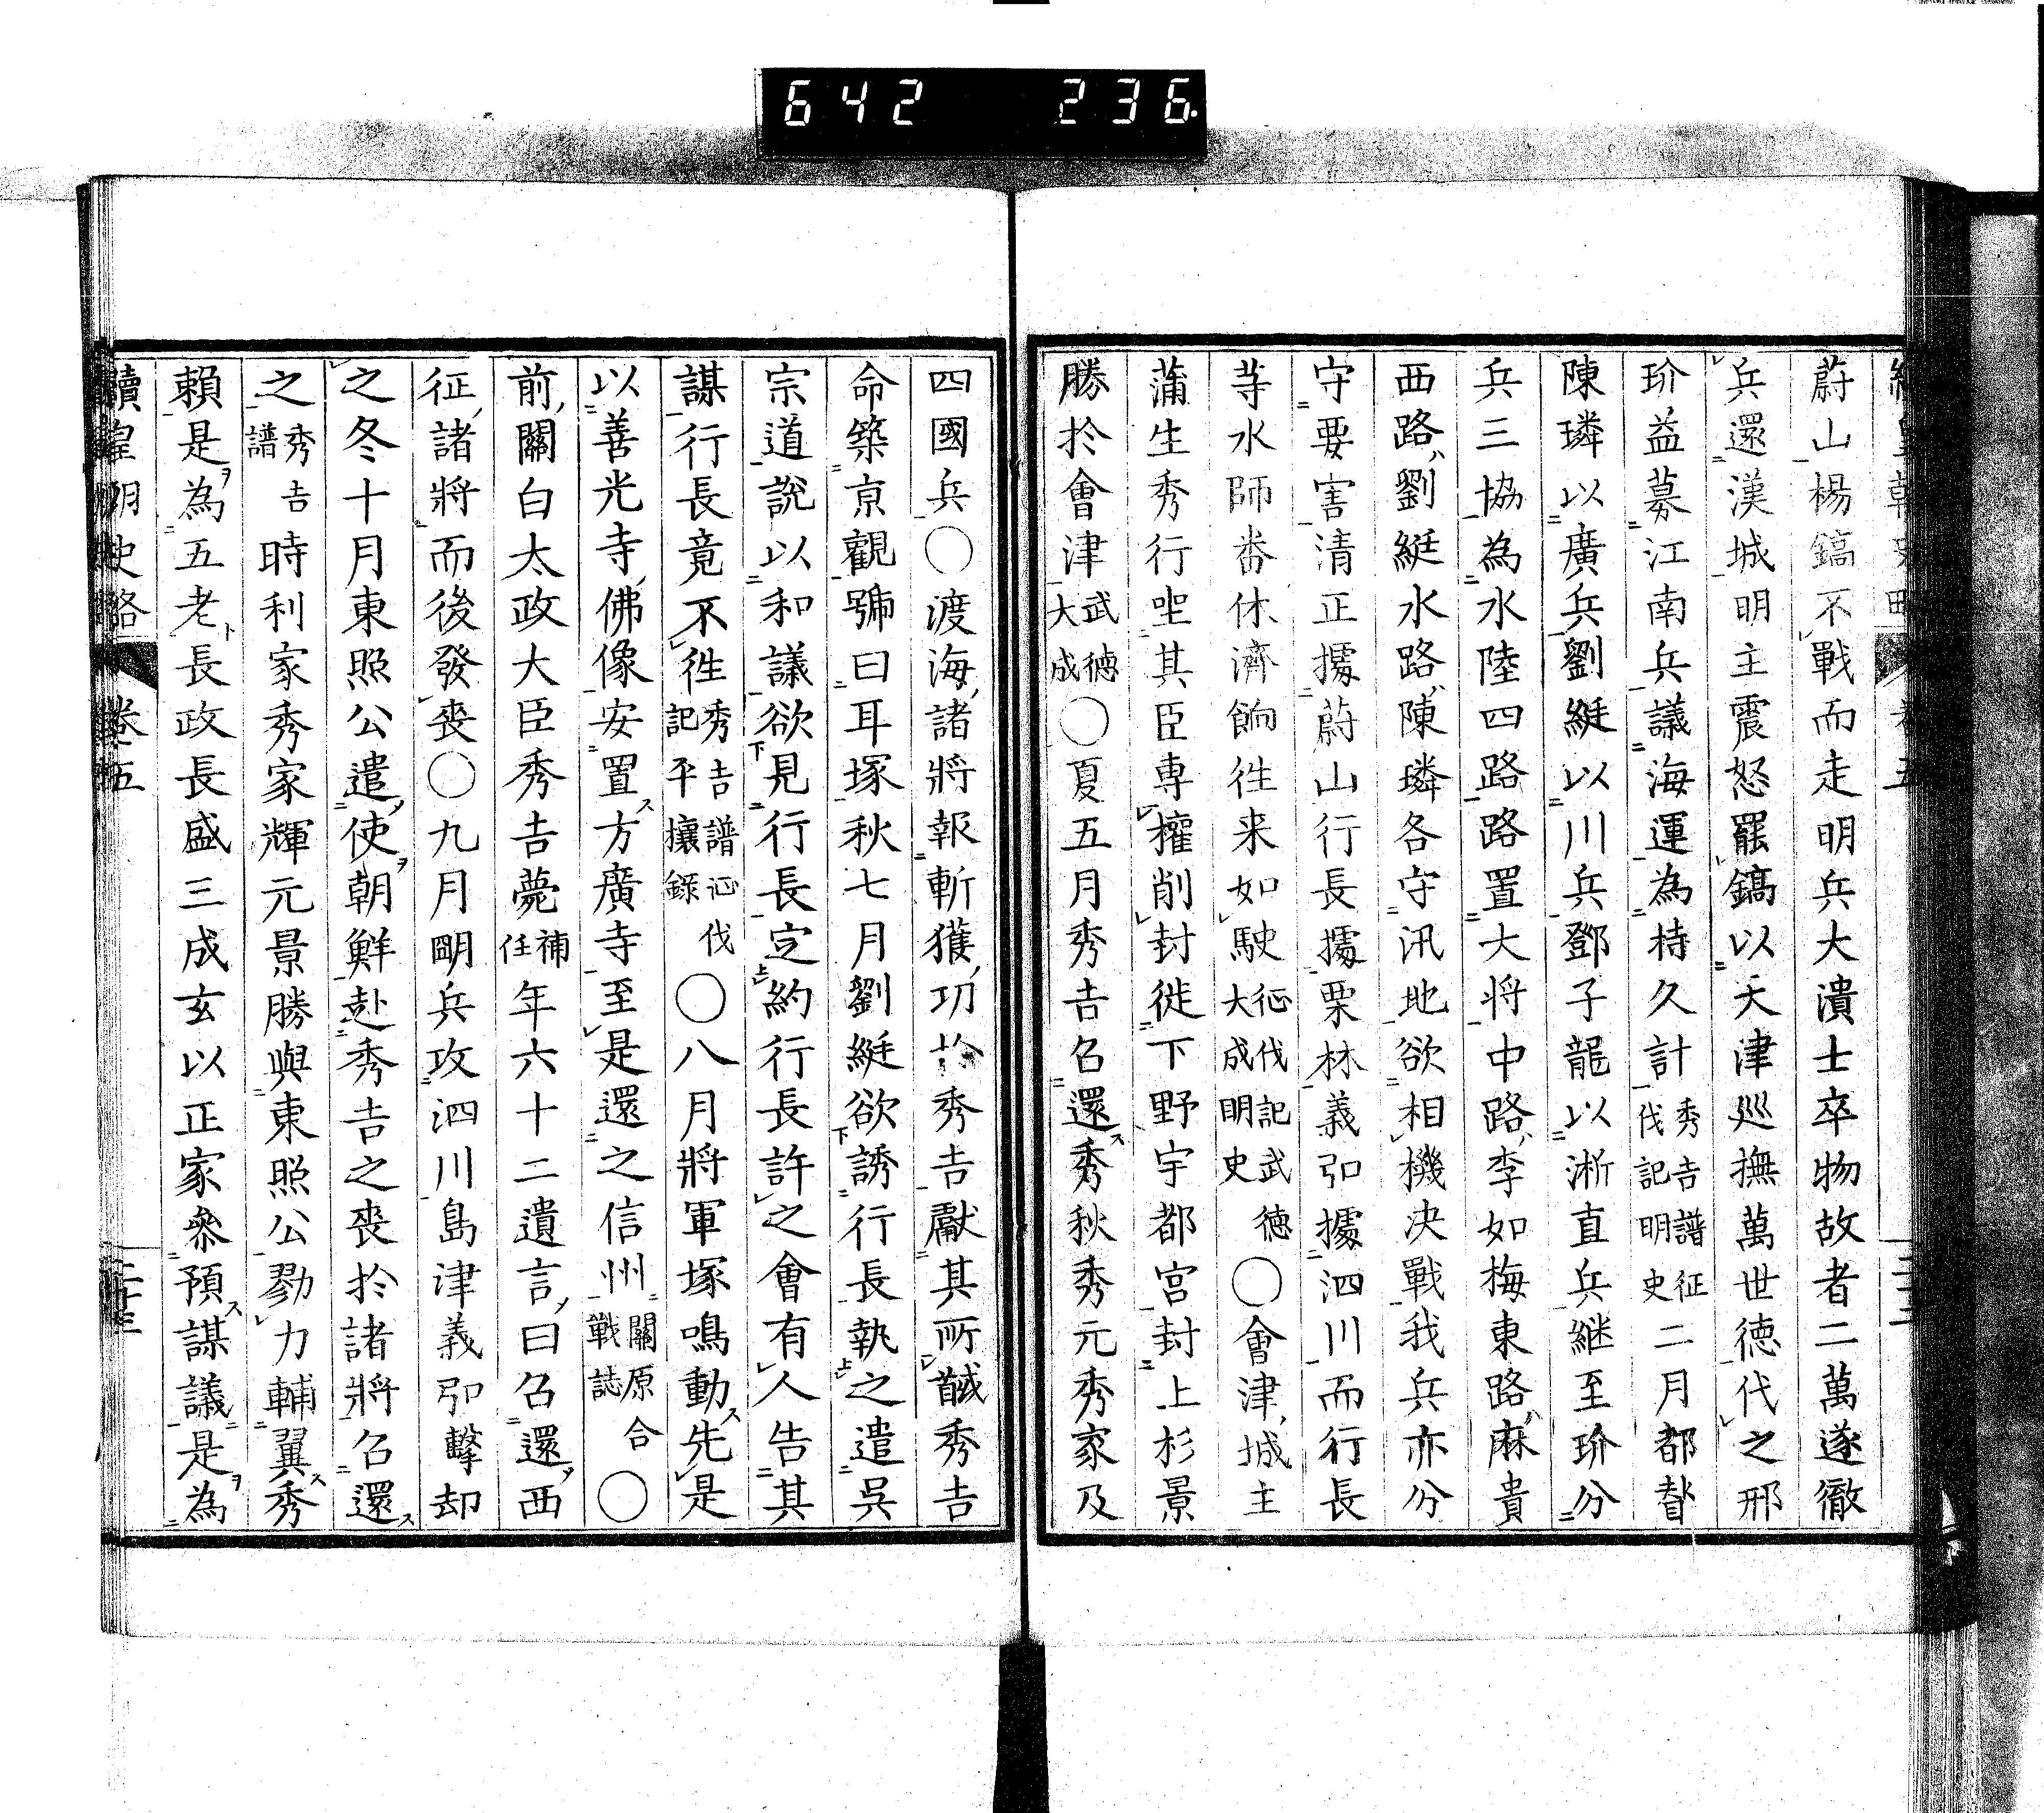 642 236.
蔚山楊鎬不戰而走明兵大潰士卒物故者二萬遂徹
兵還漢城明主震怒罷鎬以天津巡撫萬世德代之邢
玠益募江南兵議海運為持久計秀吉譜征伐記明史二月都督
陳璘以廣兵劉綎以川兵鄧子龍以淅直兵継至玠分
兵三協為水陸四路路置大将中路李如梅東路麻貴
西路劉綎水路陳璘各守汛地欲相機決戰我兵亦分
守要害清正據蔚山行長據栗林義弘據泗川而行長
等水師番休濟餉往来如駛征伐記武德大成明史〇會津城主
蒲生秀行㘴其臣専權削封徙下野宇都宮封上杉景
勝於會津武德大成〇夏五月秀吉召還秀秋秀元秀家及
四國兵〇渡海諸將報斬獲功於秀吉獻其所馘秀吉
命築京觀號曰耳塚秋七月劉綎欲誘行長執之遣吳
宗道説以和議欲見行長定約行長許之會有人告其
謀行長竟不往秀吉譜征伐記平攘錄〇八月將軍塚鳴動先是
以善光寺佛像安置方廣寺至是還之信州關原合戰誌〇
前關白太政大臣秀吉薨補任年六十二遺言曰召還西
征諸將而後發喪〇九月明兵攻泗川島津義弘擊却
之冬十月東照公遣使朝鮮赴秀吉之喪於諸將召還
之秀吉譜時利家秀家輝元景勝與東照公勠力輔翼秀
賴是為五老長政長盛三成玄以正家參預謀議是為
續皇朝史略 卷五 二十三